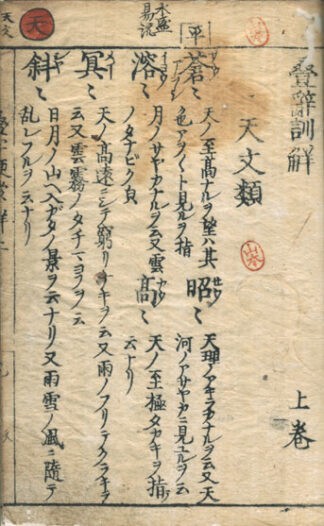 疊辭訓解
上卷
天文類
平
蒼〻
天ノ至高ナルヲ望ハ其
色アヲ〱ト見ルヲ指
昭〻
天理ノアキラカナルヲ云又天
河ノアサヤカニ見ユルヲ云
溶〻
月ノサヤカナルヲ云又雲
ノタナビク皃
高〻
天ノ至極タカキヲ指
云ナリ
冥〻
天ノ高遠ニシテ窮リナキヲ云又雨ノフリテクラキヲ
云又雲霧ノタチマヨウヲ云
斜〻
日月ノ山ヘ入ガタノ景ヲ云ナリ又雨雪ノ風ニ隨テ
乱レフルヲ云ナリ
天
天文